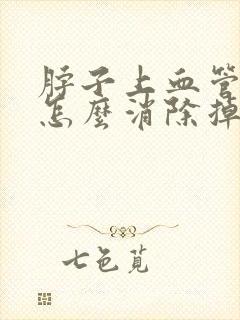 脖子上血管
怎麼消除掉
七色芃